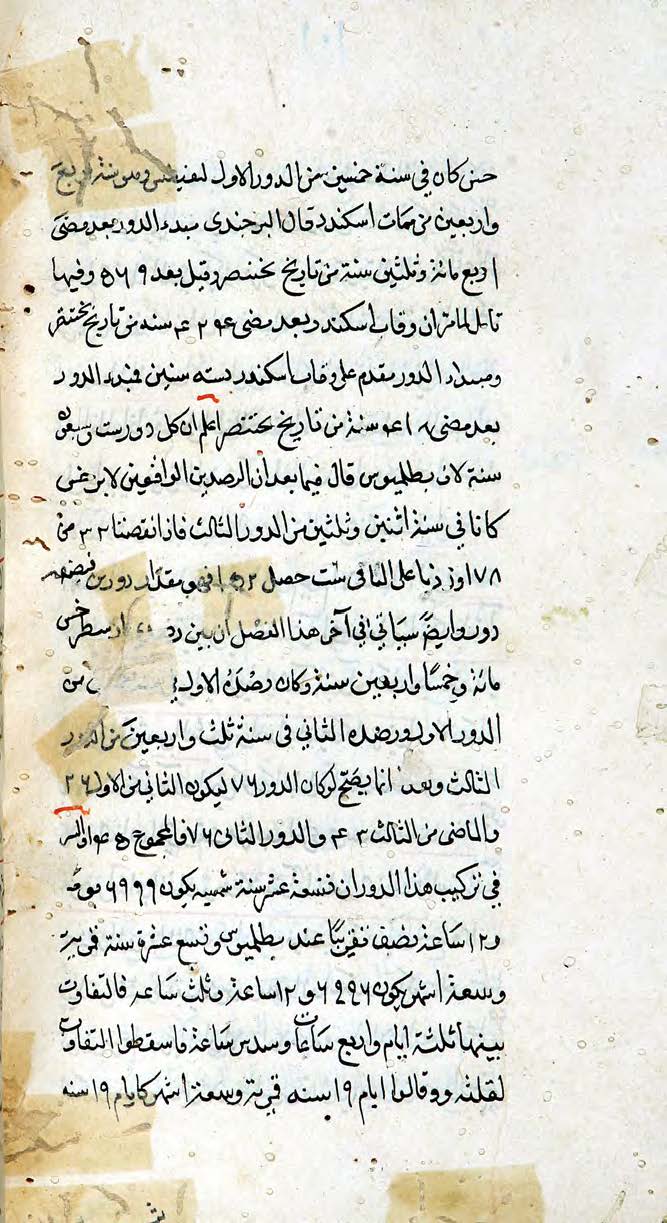 حين كان في سنة خمسين من الدور الاول لفنيفس وهي سنة اربع
واربعين من ممات اسكندر قال البرجندى مبدء الدور بعد مضى
اربع مائة وثلثين سنة من تاريخ بختنصر وقيل بعد ٥٦٩ وفيها
تامل لما مر ان وفات اسكندر بعد مضى ٤٢٤ سنة من تاريخ بختنصر
ومبداء الدور مقدم على وفات اسكندر بسته سنين فمبدء الدور
بعد مضى ٤١٨ سنة من تاريخ بختنصر اعلم ان كل دور ست وسبعون
سنة لان بطلميوس قال فيما بعد ان الرصدين الواقعين لابرخس
كانا في سنة اثنين وثلثين من الدور الثالث فاذا نقصنا ٣٢ من
١٧٨ وزدنا على الباقى ست حصل ١٥٢ فهو مقدار دورين فنصفه
دور وايضً سياتي في آخر هذا الفصل ان بين رصد ارسطرخس
مائة وخمسًا واربعين سنة وكان رصده الاول من
الدور الاول ورصده الثاني في سنة ثلث واربعين من الدور
الثالث وبعد انما يصّح لو كان الدور ٧٦ ليكون الثاني من الاول ٢٦
والماضى من الثالث ٤٣ والدور الثانى ٧٦ فالمجموع ١٤٥ والسر
في تركيب هذا الدور ان تسعة عشر سنة شمسيه يكون ٦٩٣٩ يومًا
و١٢ ساعة ونصف تقريبًا عند بطلميوس وتسع عشرة سنة قمرية
وسبعة اشهر يكون ٦٩٣٦ و١٢ ساعة وثلث ساعه فالتفاوت
بينهما ثلثة ايام واربع ساعات وسدس ساعة فاسقطوا التفاوت
لقلته وقالوا ايام ١٩ سنه قمرية وسبعة اشهر كايام ١٩ سنه